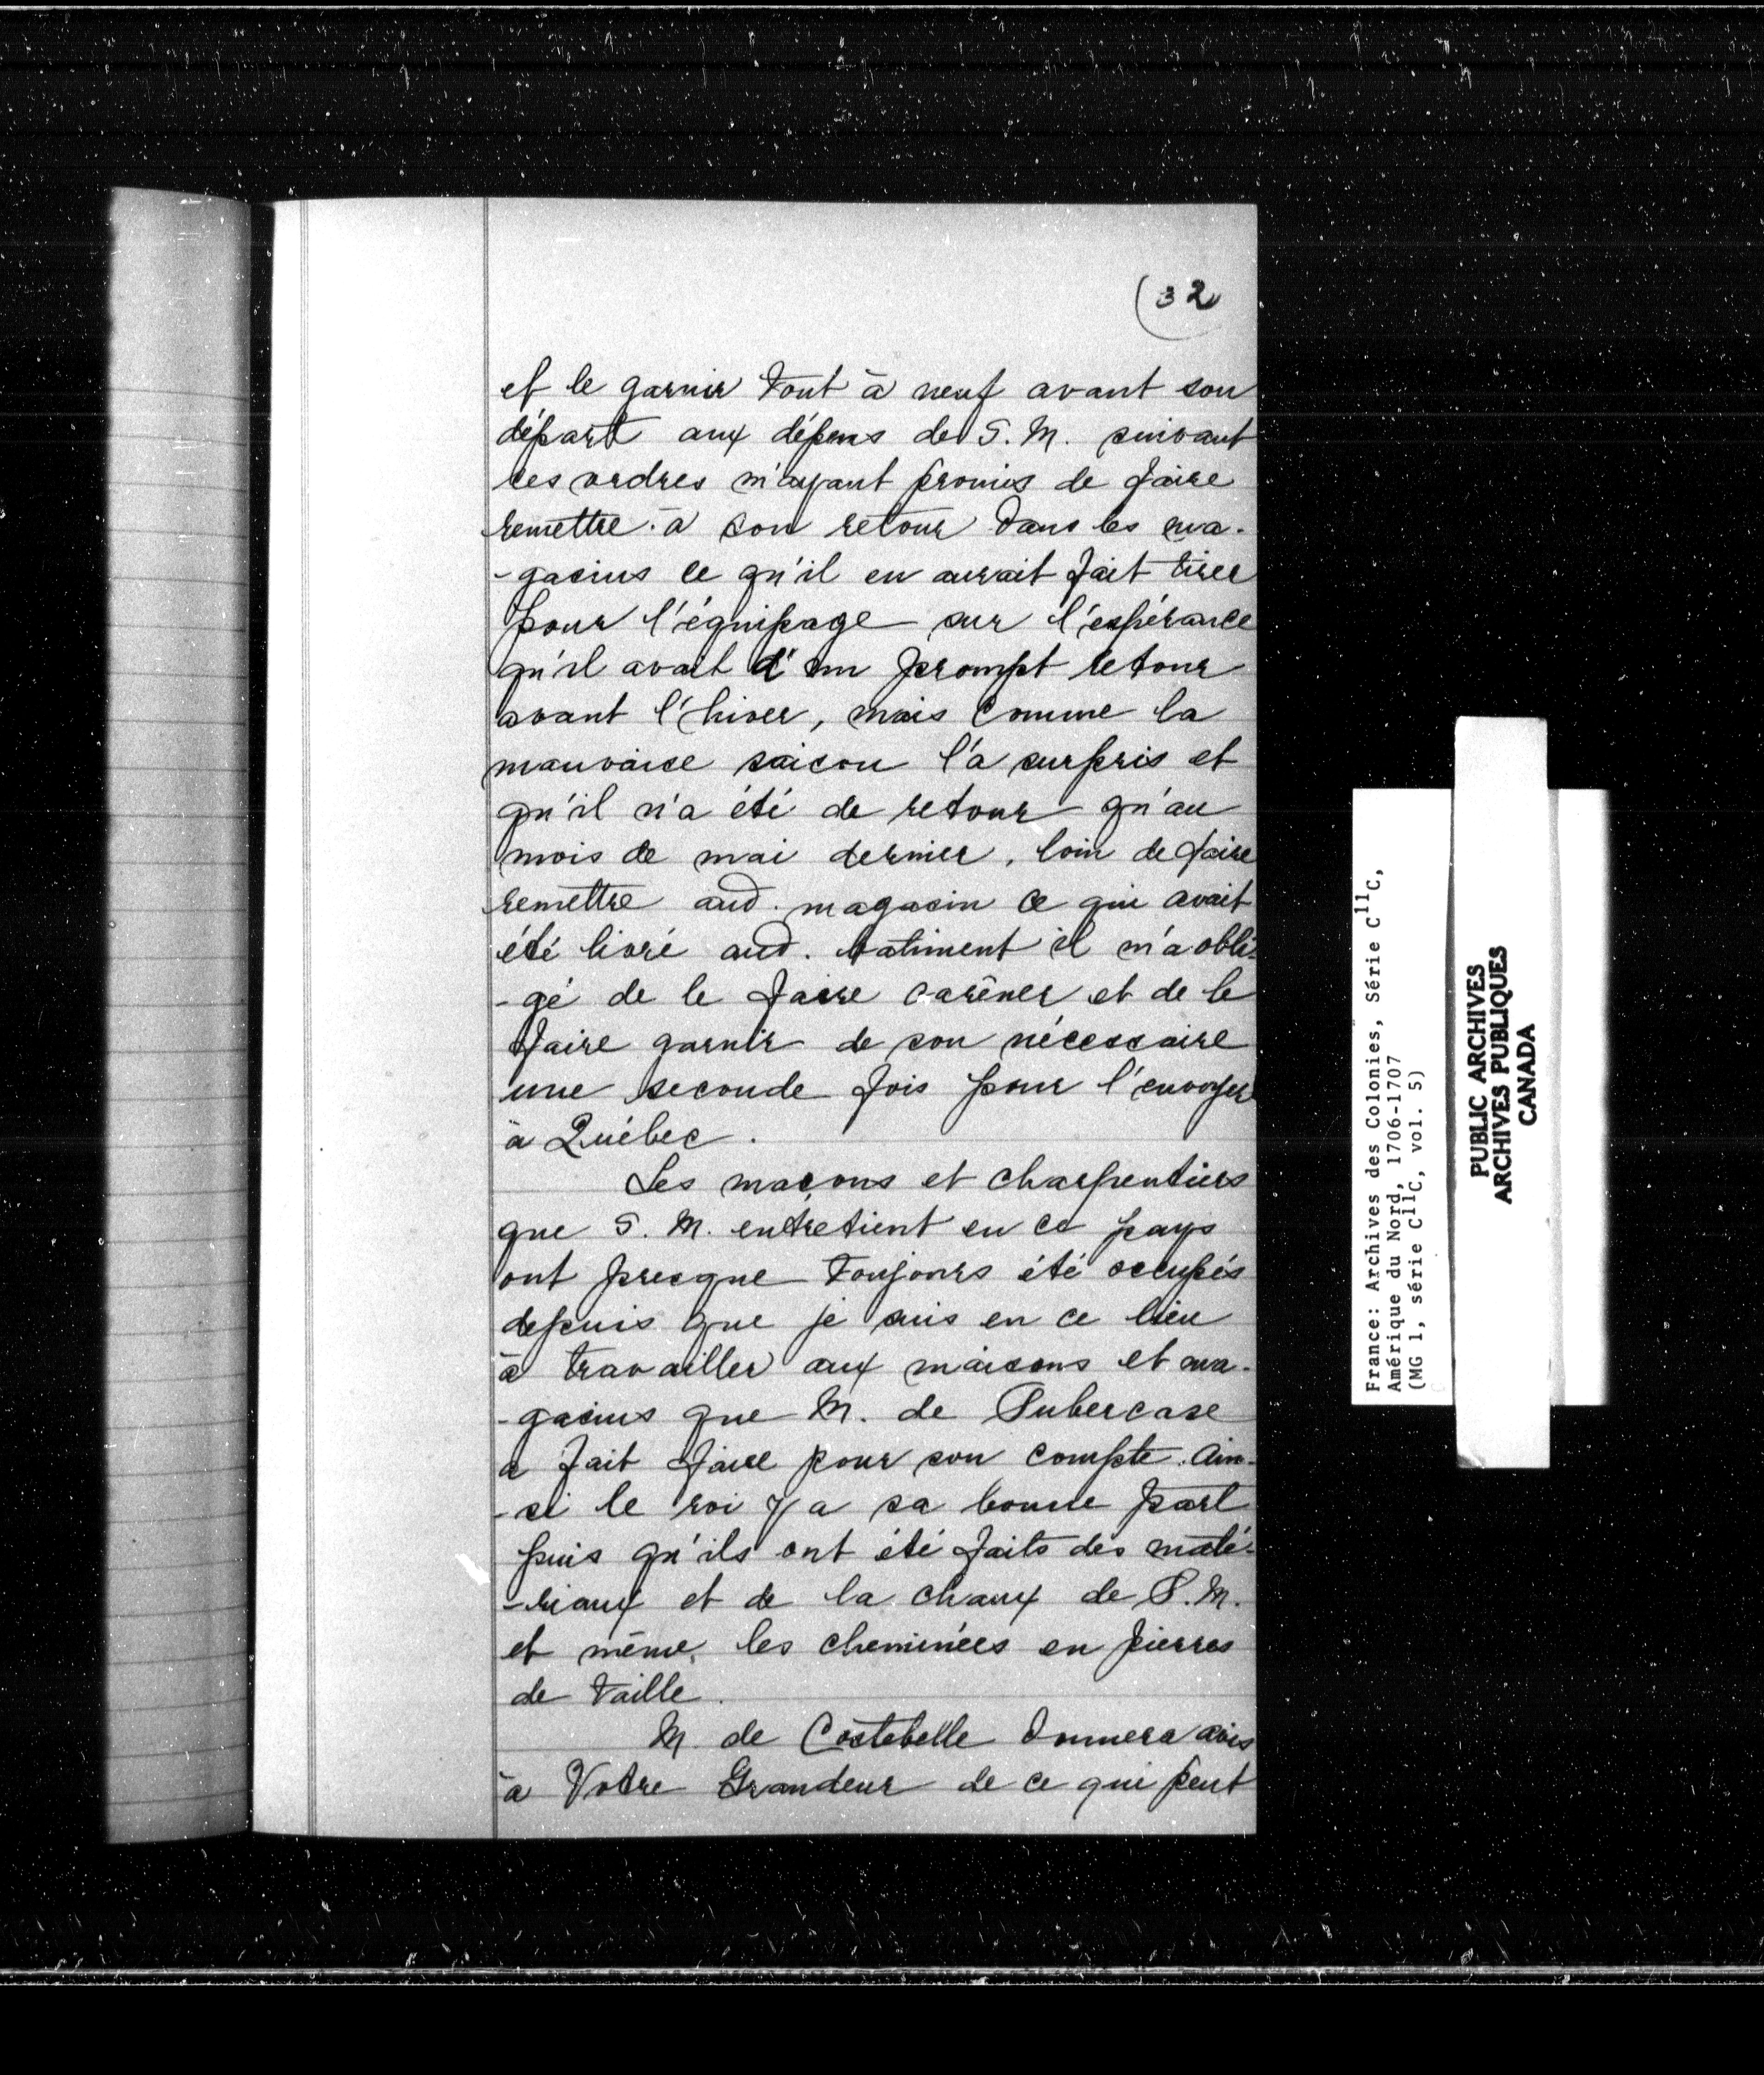 (32
et le garnir tout à neuf avant son
départ aux dépens de S. M. suivant
ses ordres m'ayant promis de faire
remettre à son retour dans les ma-
-gasins ce qu'il en aurait fait tirer
pour l'équipage sur l'espérance
qu'il avait d'un prompt retour
avant l'hiver, mais comme la
mauvaise saison l'a surpris et
qu'il n'a été de retour qu'au
mois de mai dernier, loin de faire
remettre aud. magasin ce qui avait
été livré aud. batiment il m'a obli-
-gé de le faire carêner et de le
faire garnir de son nécessaire
une seconde fois pour l'envoyer
à Québec.
Les maçons et charpentiers
que S. M. entretient en ce pays
ont presque toujours été occupés
depuis que je suis en ce lieu
à travailler aux maisons et ma-
-gasins que M. de Subercase
a fait faire pour son compte. Ain-
-si le roi y a sa bonne part
puis qu'ils ont été faits des maté-
-riaux et de la chaux de S. M.
et même, les cheminées en pierres
de taille.
M. de Costebelle donnera avis
à Votre Grandeur de ce qui peut
France: Archives des Colonies, Série C11C,
Amérique du Nord, 1706-1707
(MG 1, série C11C, vol. 5)
PUBLIC ARCHIVES
ARCHIVES PUBLIQUES
CANADA